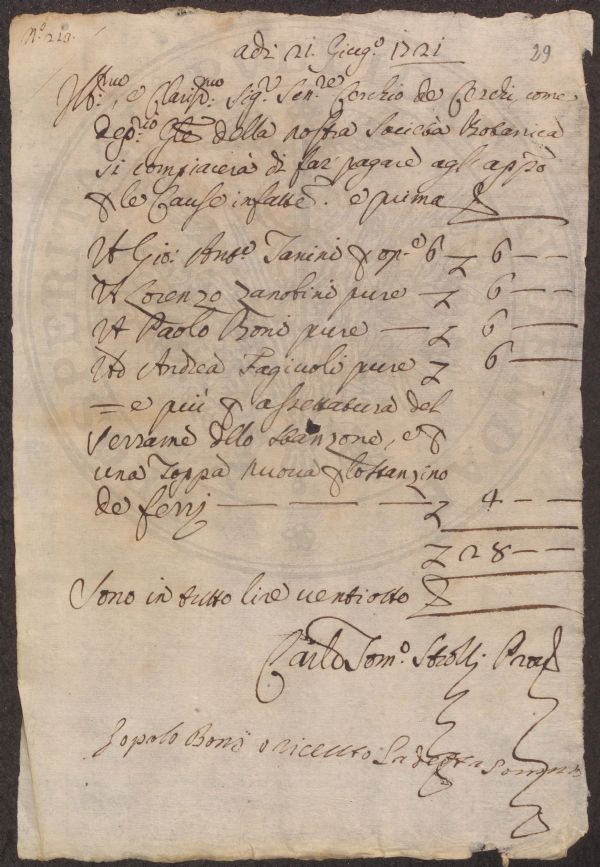 N.º 229.
adi 21. Giug.º 1721
29
Ill:mo, e Clariss.mo Sig.r Sen.re Cerchio de Cerchi, come
Dep.rio della nostra Società Botanica
si compiacerà di far pagare agl'appᵒ
le Cause infatte. e prima
A Gio: Ant.º Tanini p op.e 6 L 6 — —
A Lorenzo Zanobini pure — L 6 — —
A Paolo Boni pure — L 6 — —
Ad Andrea Fagiuoli pure L 6 — —
= e più p assettatura del
serrame dllo stanzone, e p
una Toppa nuova p lo stanzino
de ferrj — — — — L 4 — —
L 28 — —
Sono in tutto lire ventiotto
Carlo Tom.º Strozzj
Io polo Boni o riceuto La detta Somma